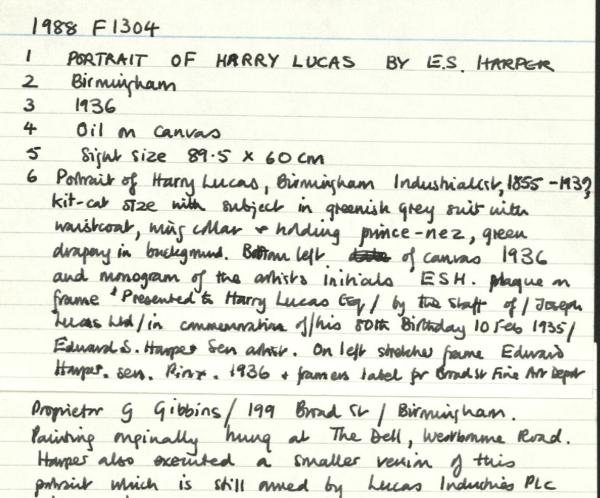 1988 F1304
1 PORTRAIT OF HARRY LUCAS BY E.S. HARPER
2 Birmingham
3 1936
4 Oil on canvas
5 Sight size 89.5 x 60 cm
6 Portrait of Harry Lucas, Birmingham Industrialist, 1855 - 1939
kit-cat size with subject in greenish grey suit with
waistcoat, wing collar + holding prince-nez, green
drapery in background. Bottom left of canvas 1936
and monogram of the artists initials ESH. plaque on
frame 'Presented to Harry Lucas Esq / by the staff of / Joseph
Lucas Ltd / in commemoration of / his 80th Birthday 10 Feb 1935 /
Edward S. Harper Sen artist. On left stretcher frame Edward
Harper. sen. Pinx. 1936 + framers label for Broad St Fine Art Depot
Proprietor G Gibbins / 199 Broad St / Birmingham.
Painting originally hung at The Dell, Westbourne Road.
Harper also executed a smaller version of this
portrait which is still owned by Lucas Industries PLC